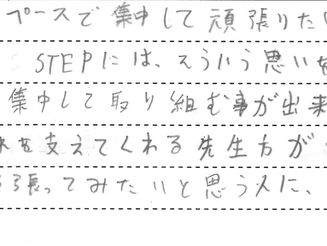 ペースで集中して頑張りたい
STEPには、そういう思いを
集中して取り組む事が出来
を支えてくれる先生方が
張ってみたいと思う人に、